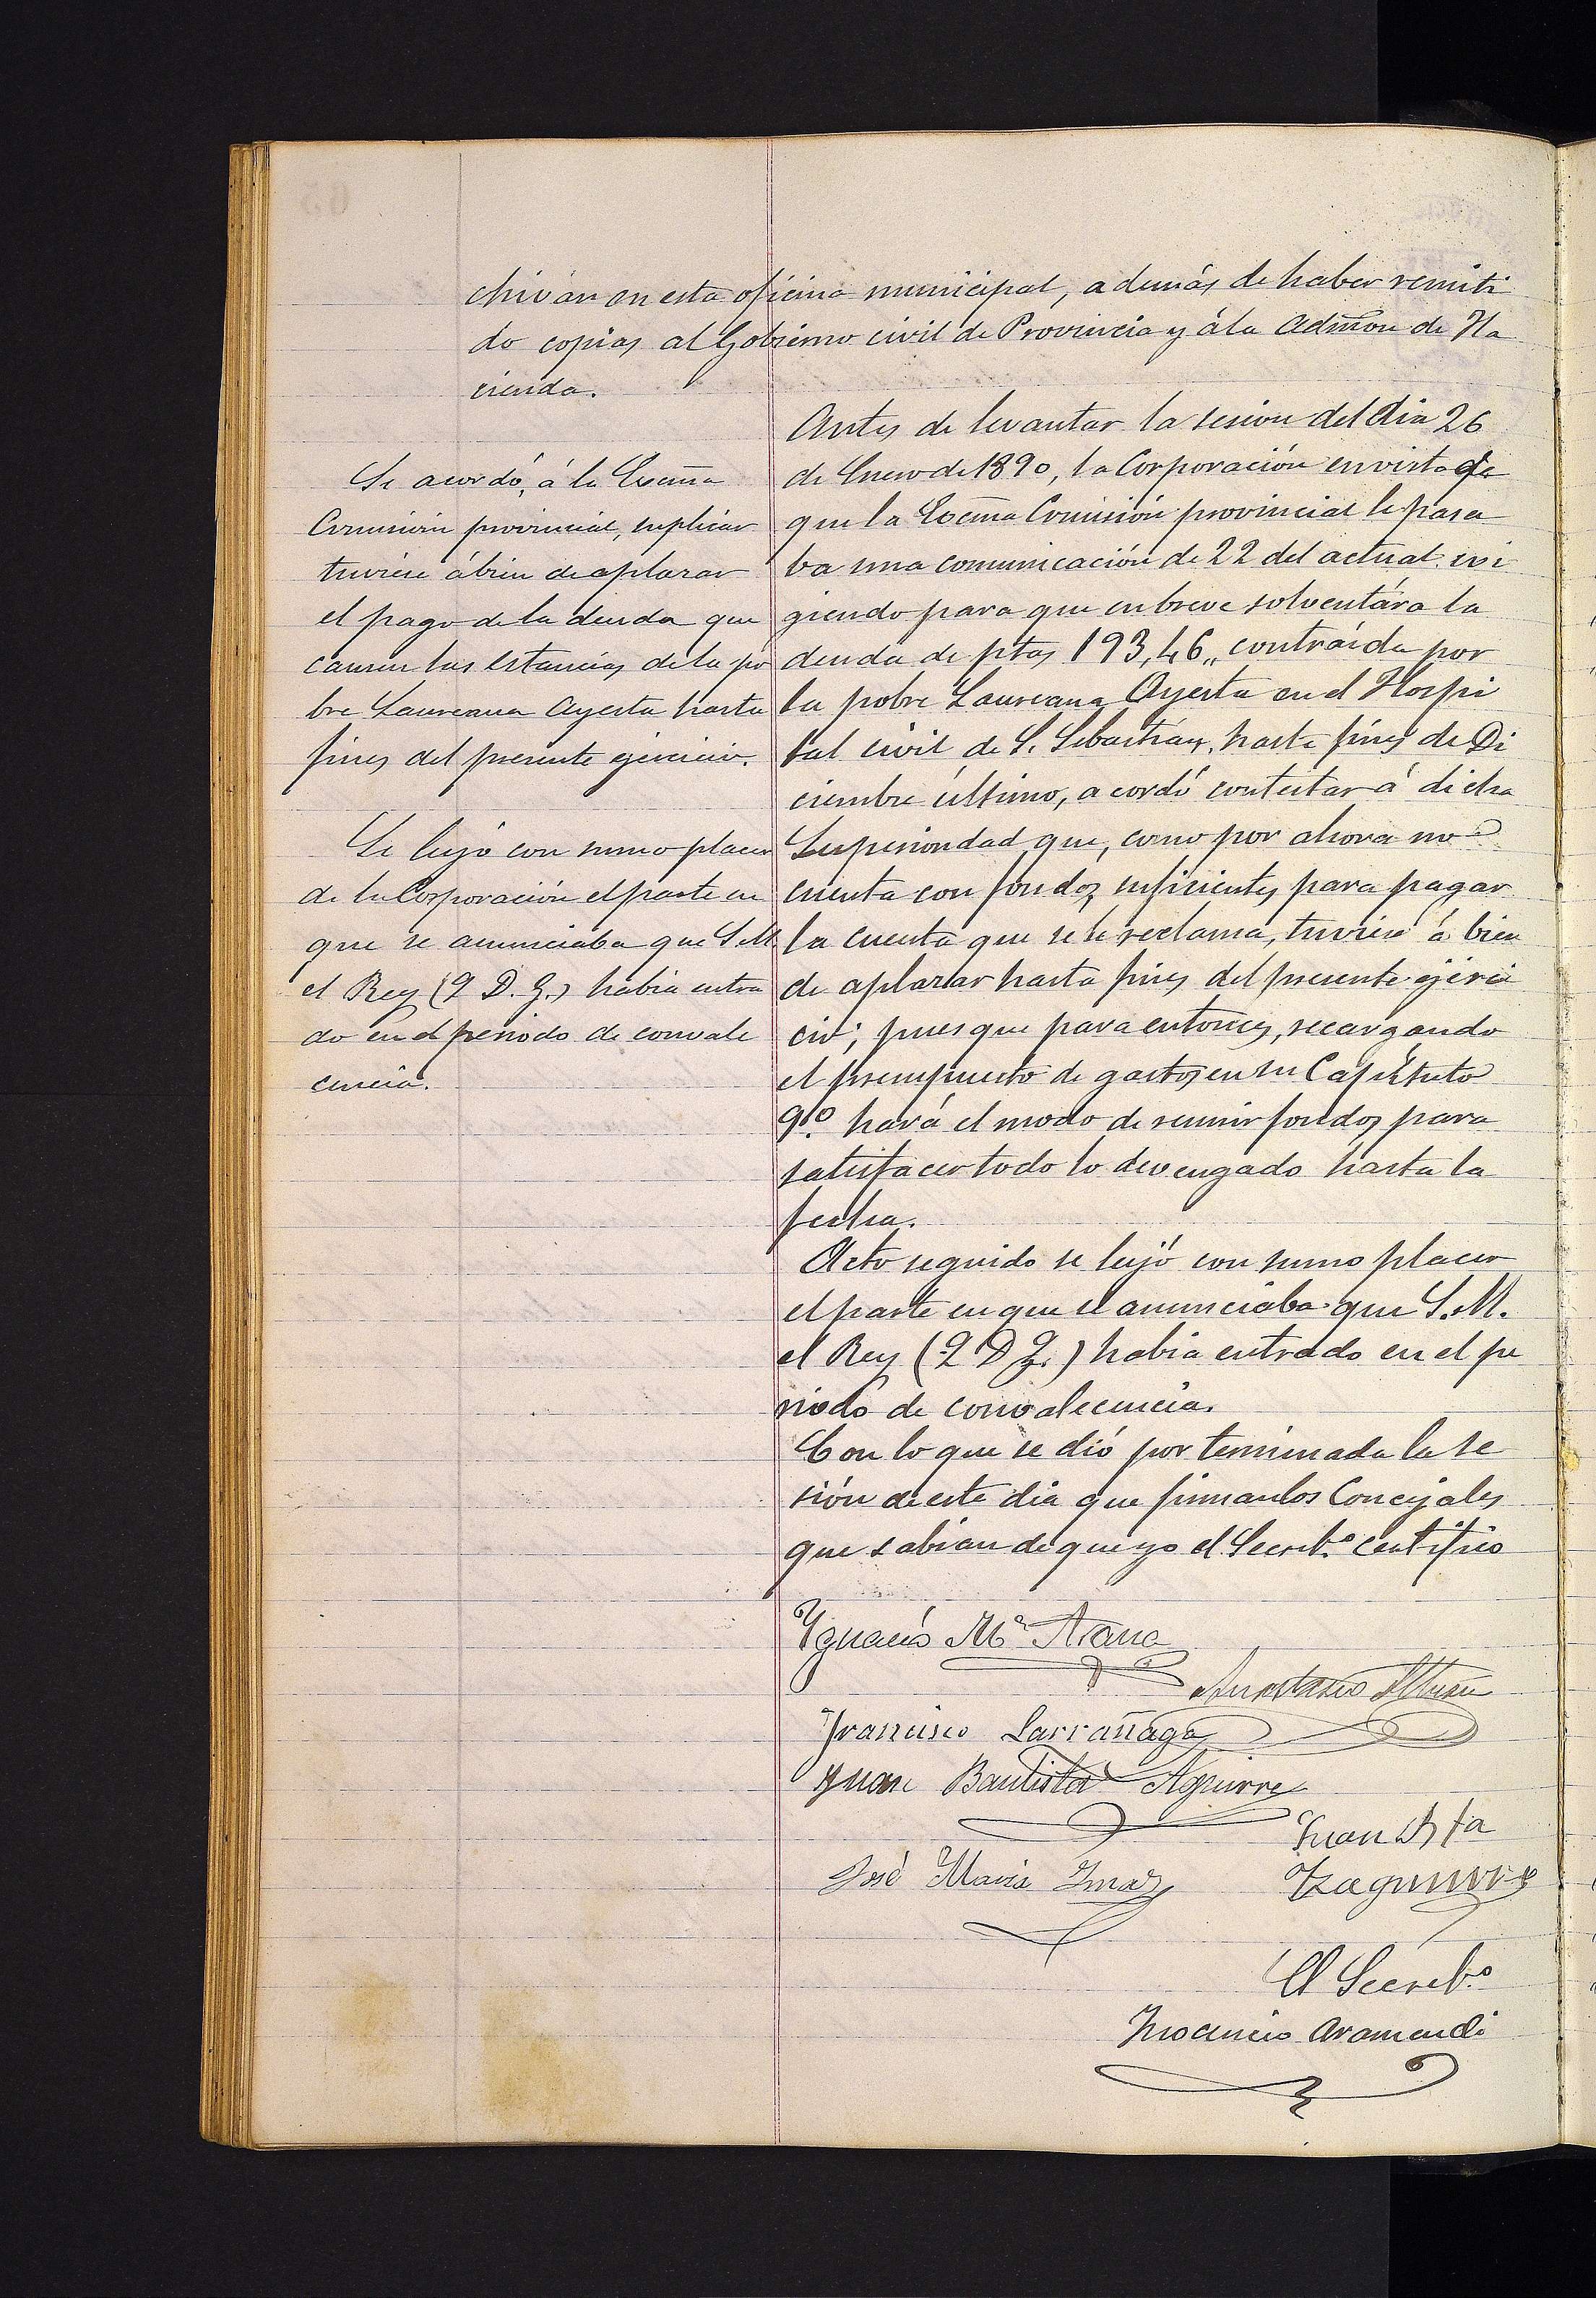 chivan en esta oficina municipal, además de haber remiti
do copias al Gobierno civil de Provincia y á la Admōn de Ha
cienda.
Se acordó, á la Excma
Comisión provincial, suplicar
tuviese á bien de aplazar
el pago de la deuda que
causen las estancias de la po
bre Laureana Ayesta hasta
fines del presente ejercicio.
Se leyó con sumo placer
de la Corporación el parte en
que se anunciaba que S. M.
el Rey (Q. D. G.) habia entra
do en el periodo de convale
cencia.
Antes de levantar la sesion del dia 26
de Enero de 1890, la Corporación en vista de
que la Excma Comisión provincial le pasa
ba una comunicación de 22 del actual exi
giendo para que en breve solventára la
deuda de ptas 193,46,, contraída por
la pobre Laureana Ayesta en el Hospi
tal civil de S. Sebastián, hasta fines de Di
ciembre último, acordó contestar á dicha
Superioridad que, como por ahora no
cuenta con fondos suficientes para pagar
la cuenta que se le reclama, tuviese á bien
de aplazar hasta fines del presente ejerci
cio; pues que para entonces, recargando
el presupuesto de gastos en su Capítulo
9.º hará el modo de reunir fondos para
satisfacer todo lo devengado hasta la
fecha.
Acto seguido se leyó con sumo placer
el parte en que se anunciaba que S. M.
el Rey (Q D G.) habia entrado en el pe
riodo de convalecencia.
Con lo que se dió por terminada la se
sión de este dia que firman los Concejales
que sabian de que yo el Secret.º certifico
Ygnacio Mª Arana
Anastasio
Francisco Larrañaga
Juan Bautista Aguirre
Juan Bta
José Maria Ymaz
Yzaguirre
El Secret.º
Inocencio Aramendi